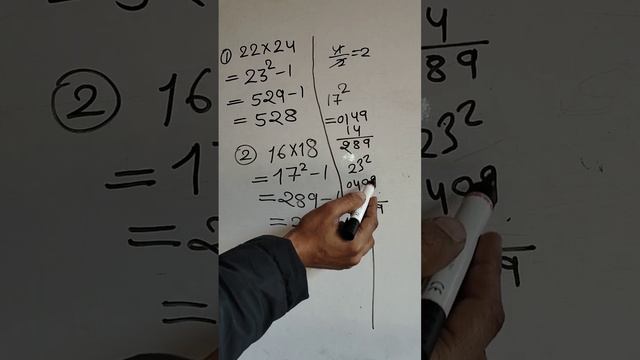 ① 22×24
= 23²-1
= 529-1
= 528
② 16×18
= 17²-1
= 289-1
= 2
4/2=2
17²
=0149
14
289
23²
0409
9